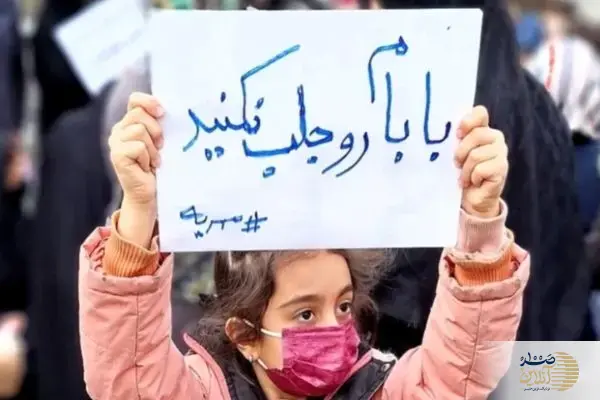 بابام رو جلب نکنید
#مهریه
صدای
آنلاین